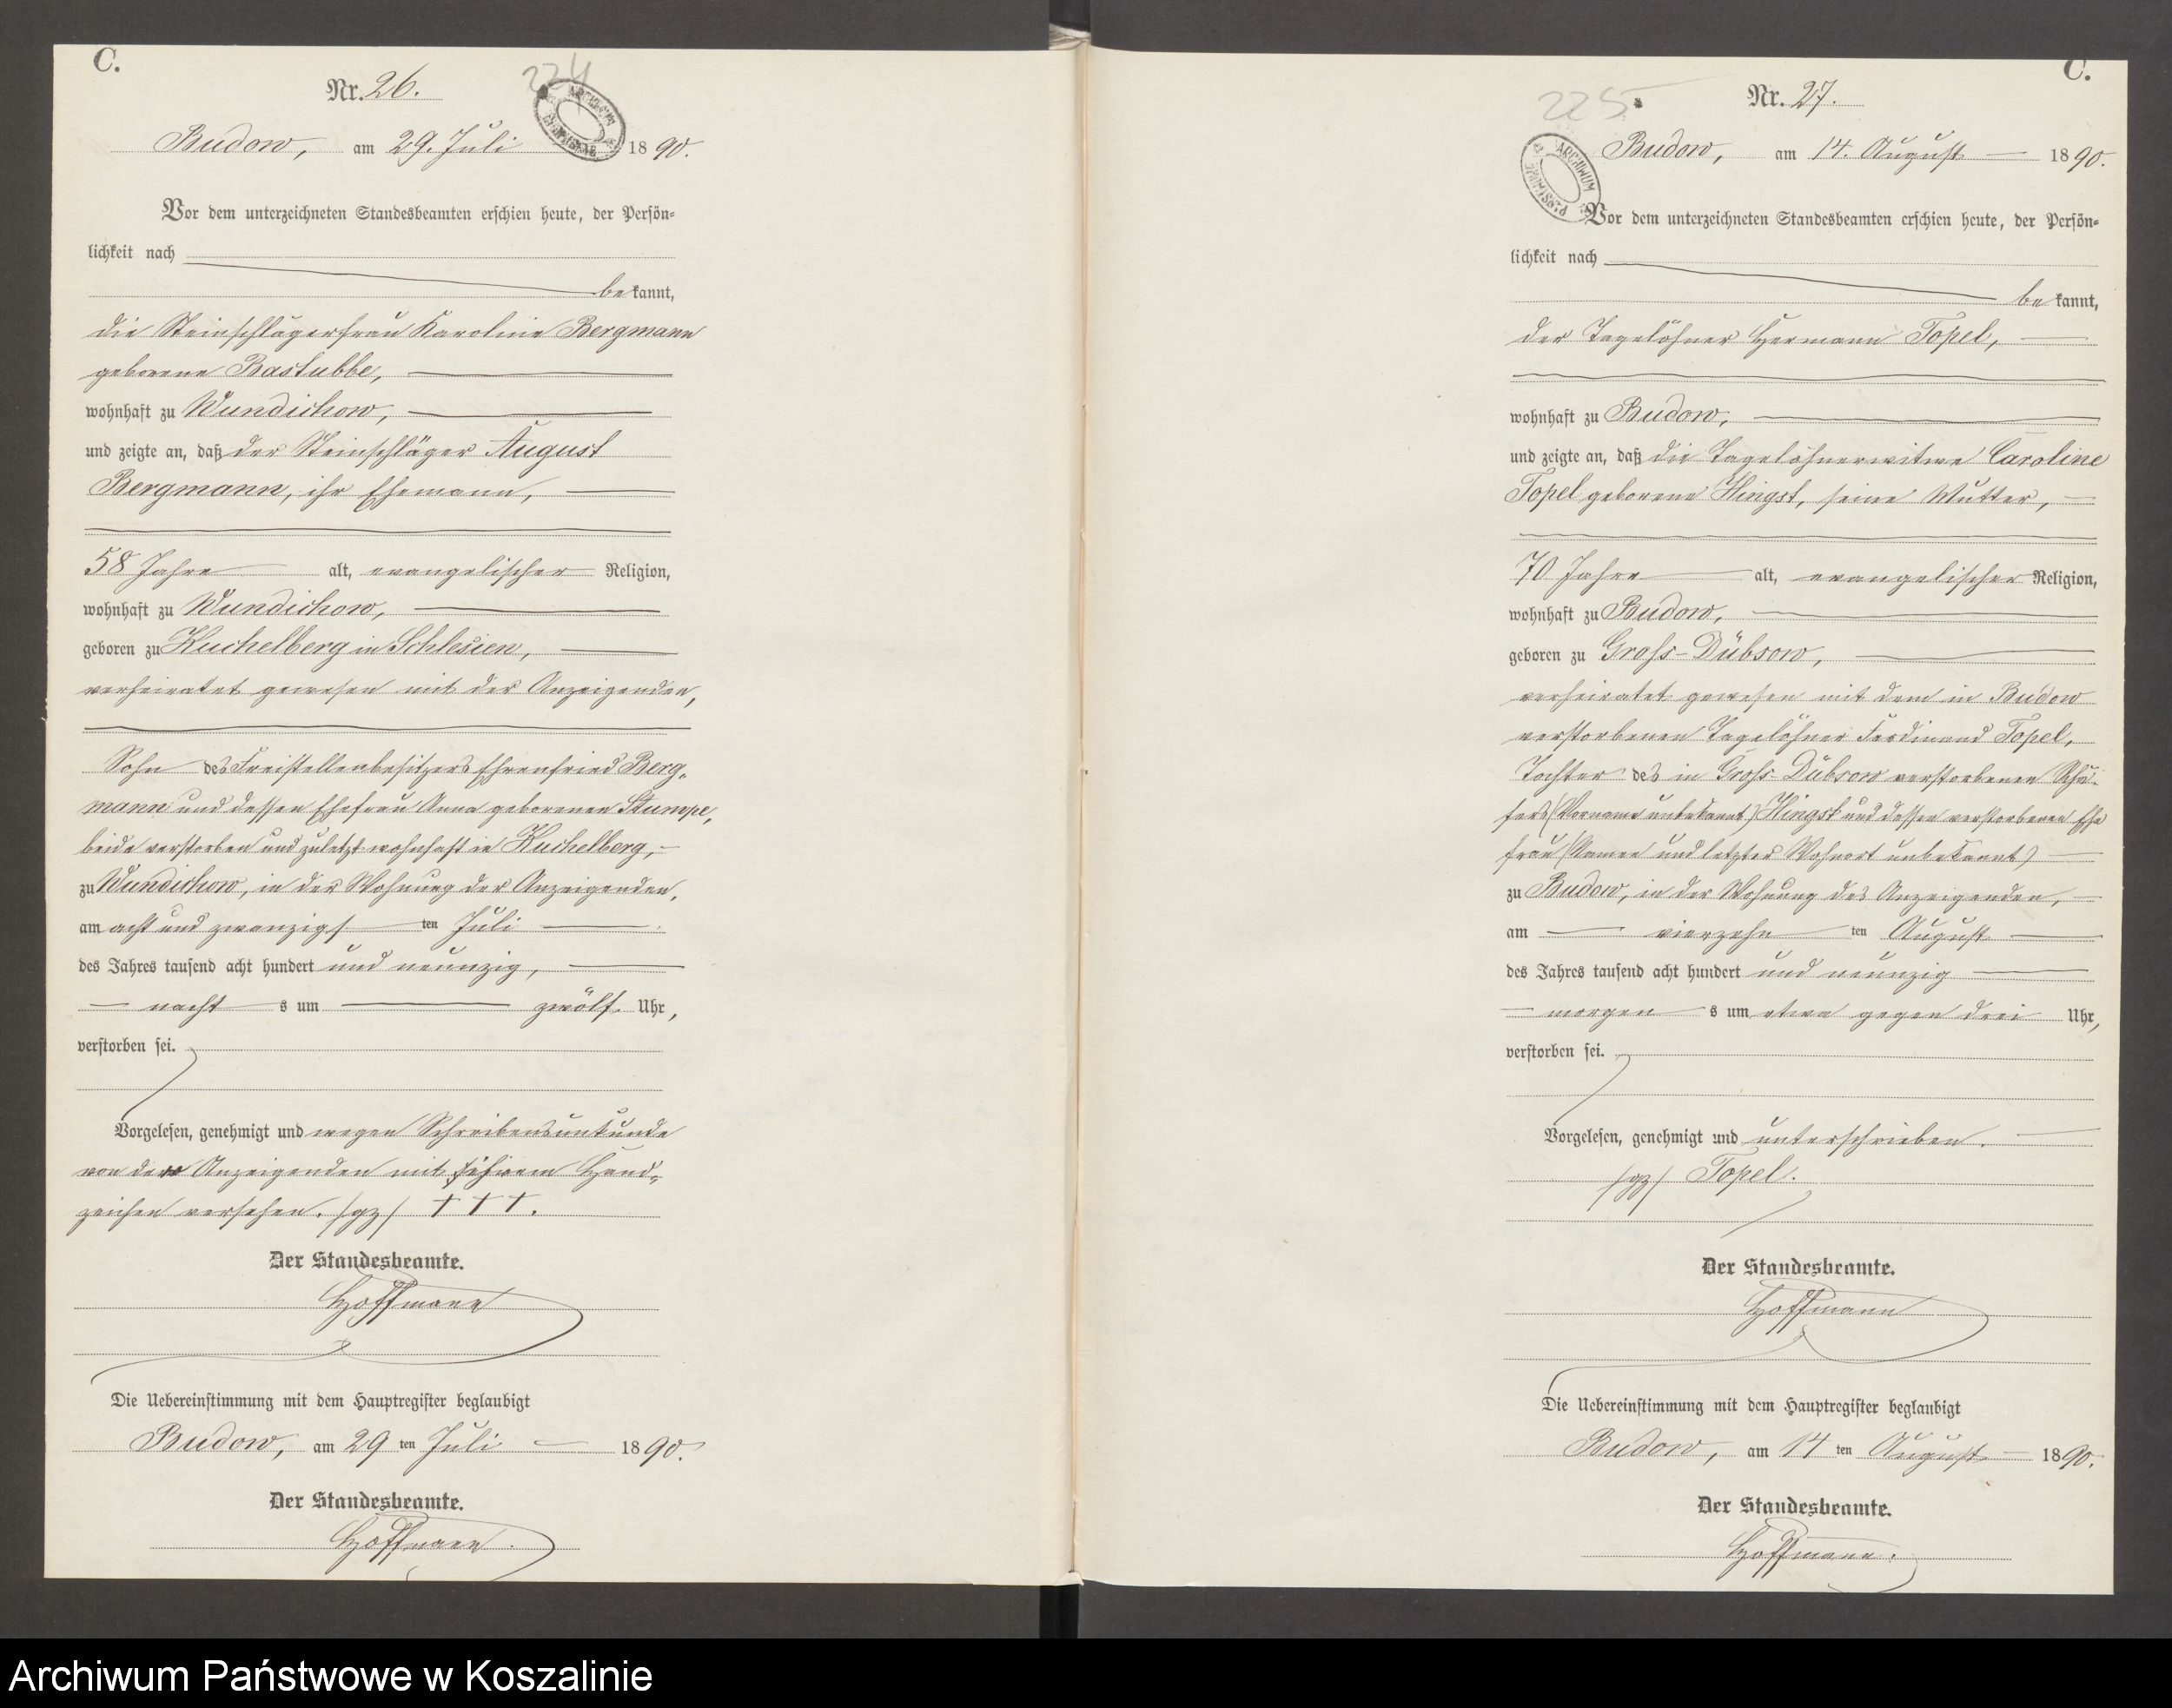 C.
Nr. 26.
224
Budow, am 29. Juli 1890.
Vor dem unterzeichneten Standesbeamten erschien heute, der Persön-
lichkeit nach
bekannt,
die Steinschlägerfrau Karoline Bergmann
geborene Bastubbe,
wohnhaft zu Wundichow,
und zeigte an, daß der Steinschläger August
Bergmann, ihr Ehemann,
58 Jahre alt, evangelischer Religion,
wohnhaft zu Wundichow,
geboren zu Kuchelberg in Schlesien,
verheiratet gewesen mit der Anzeigenden,
Sohn des Freistellenbesitzers Ehrenfried Berg-
mann und dessen Ehefrau Anna geborenen Stumpe,
beide verstorben und zuletzt wohnhaft in Kuchelberg,
zu Wundichow, in der Wohnung der Anzeigenden,
am acht und zwanzigsten Juli
des Jahres tausend acht hundert und neunzig,
nachts um zwölf Uhr,
verstorben sei.
Vorgelesen, genehmigt und wegen Schreibensunkunde
von der Anzeigenden mit ihrem Hand-
zeichen versehen. /gz/ + + +.
Der Standesbeamte.
Hoffmann
Die Uebereinstimmung mit dem Hauptregister beglaubigt
Budow, am 29ten Juli 1890.
Der Standesbeamte.
Hoffmann.
C.
Nr. 27.
225
ARCHIWUM
Budow, am 14. August 1890.
Vor dem unterzeichneten Standesbeamten erschien heute, der Persön-
lichkeit nach
bekannt,
der Tagelöhner Hermann Topel,
wohnhaft zu Budow,
und zeigte an, daß die Tagelöhnerwitwe Caroline
Topel geborene Hingst, seine Mutter,
70 Jahre alt, evangelischer Religion,
wohnhaft zu Budow,
geboren zu Gross-Dübsow,
verheiratet gewesen mit dem in Budow
verstorbenen Tagelöhner Ferdinand Topel,
Tochter des in Gross Dübsow verstorbenen Schä-
fers (Vorname unbekannt) Hingst und dessen verstorbenen Ehe
frau (Namen und letzter Wohnort unbekannt)
zu Budow, in der Wohnung des Anzeigenden,
am vierzehnten August
des Jahres tausend acht hundert und neunzig
morgens um etwa gegen drei Uhr,
verstorben sei.
Vorgelesen, genehmigt und unterschrieben.
/gz/ Topel.
Der Standesbeamte.
Hoffmann
Die Uebereinstimmung mit dem Hauptregister beglaubigt
Budow, am 14ten August 1890.
Der Standesbeamte.
Hoffmann.
Archiwum Państwowe w Koszalinie